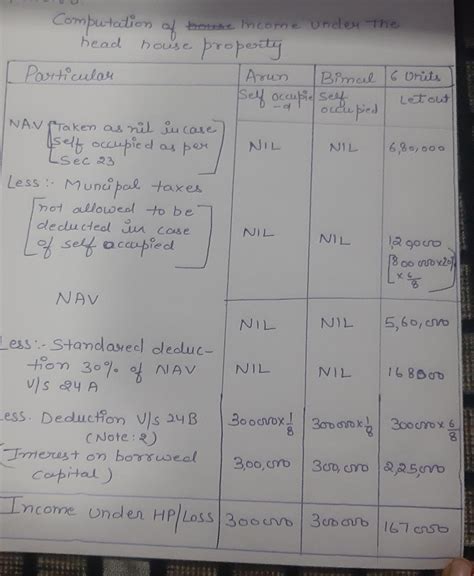 Computation of house Income under the
head house property
Particular Arun Bimal 6 Units
Self occupie Self Let out
-d occupied
NAV [Taken as nil in case
Self occupied as per NIL NIL 6,80,000
Sec 23]
Less:- Muncipal taxes
[not allowed to be
deducted in case NIL NIL 1,20,000
of self occupied] [800000x20%
x 6/8
NAV
NIL NIL 5,60,000
Less:- Standared deduc-
tion 30% of NAV NIL NIL 168000
U/s 24A
Less. Deduction U/s 24B 300000x1/8 300000x1/8 300000x6/8
(Note: 2)
(Interest on borrwed 3,00,000 300,000 2,25,000
capital)
Income under HP/Loss 300000 300000 167000